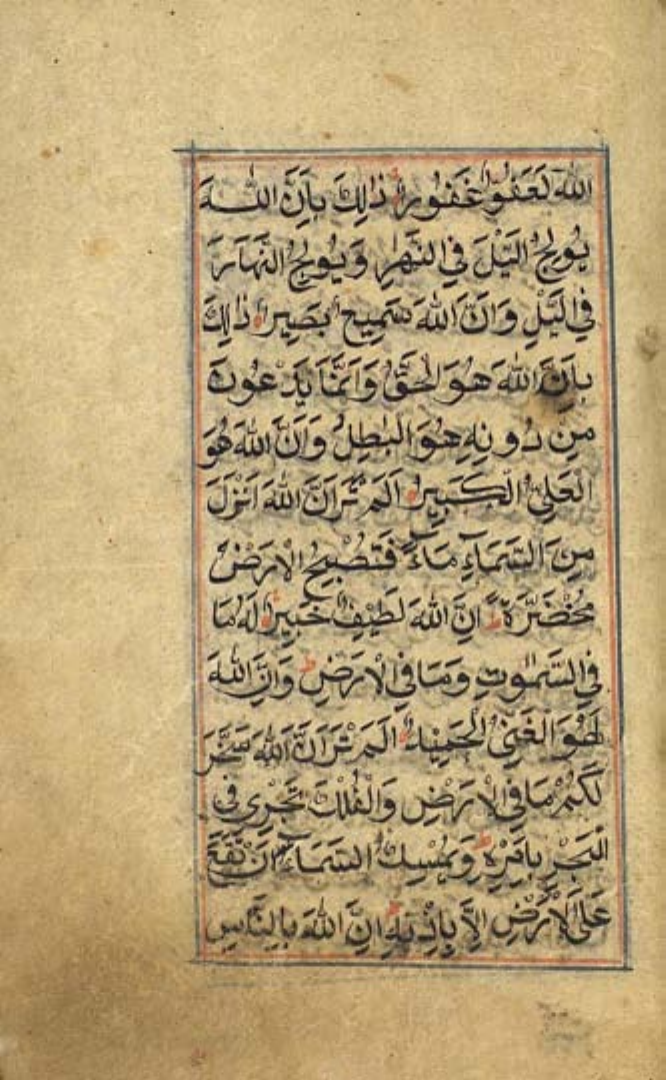 اللهَ لَعَفُوٌّ غَفُورٌ ذٰلِكَ بِاَنَّ اللهَ
يُولِجُ الَّيْلَ فِي النَّهَارِ وَيُولِجُ النَّهَارَ
فِي الَّيْلِ وَاَنَّ اللهَ سَمِيعٌ بَصِيرٌ ذٰلِكَ
بِاَنَّ اللهَ هُوَ الْحَقُّ وَاَنَّمَا يَدْعُونَ
مِنْ دُونِهِ هُوَ الْبٰطِلُ وَاَنَّ اللهَ هُوَ
الْعَلِيُّ الْكَبِيرُ اَلَمْ تَرَ اَنَّ اللهَ اَنْزَلَ
مِنَ السَّمَآءِ مَآءً فَتُصْبِحُ الْاَرْضُ
مُخْضَرَّةً اِنَّ اللهَ لَطِيفٌ خَبِيرٌ لَهُ مَا
فِي السَّمٰوٰتِ وَمَا فِي الْاَرْضِ وَاِنَّ اللهَ
لَهُوَ الْغَنِيُّ الْحَمِيدُ اَلَمْ تَرَ اَنَّ اللهَ سَخَّرَ
لَكُمْ مَا فِي الْاَرْضِ وَالْفُلْكَ تَجْرِي فِي
الْبَحْرِ بِاَمْرِهِ وَيُمْسِكُ السَّمَآءَ اَنْ تَقَعَ
عَلَى الْاَرْضِ اِلَّا بِاِذْنِهِ اِنَّ اللهَ بِالنَّاسِ